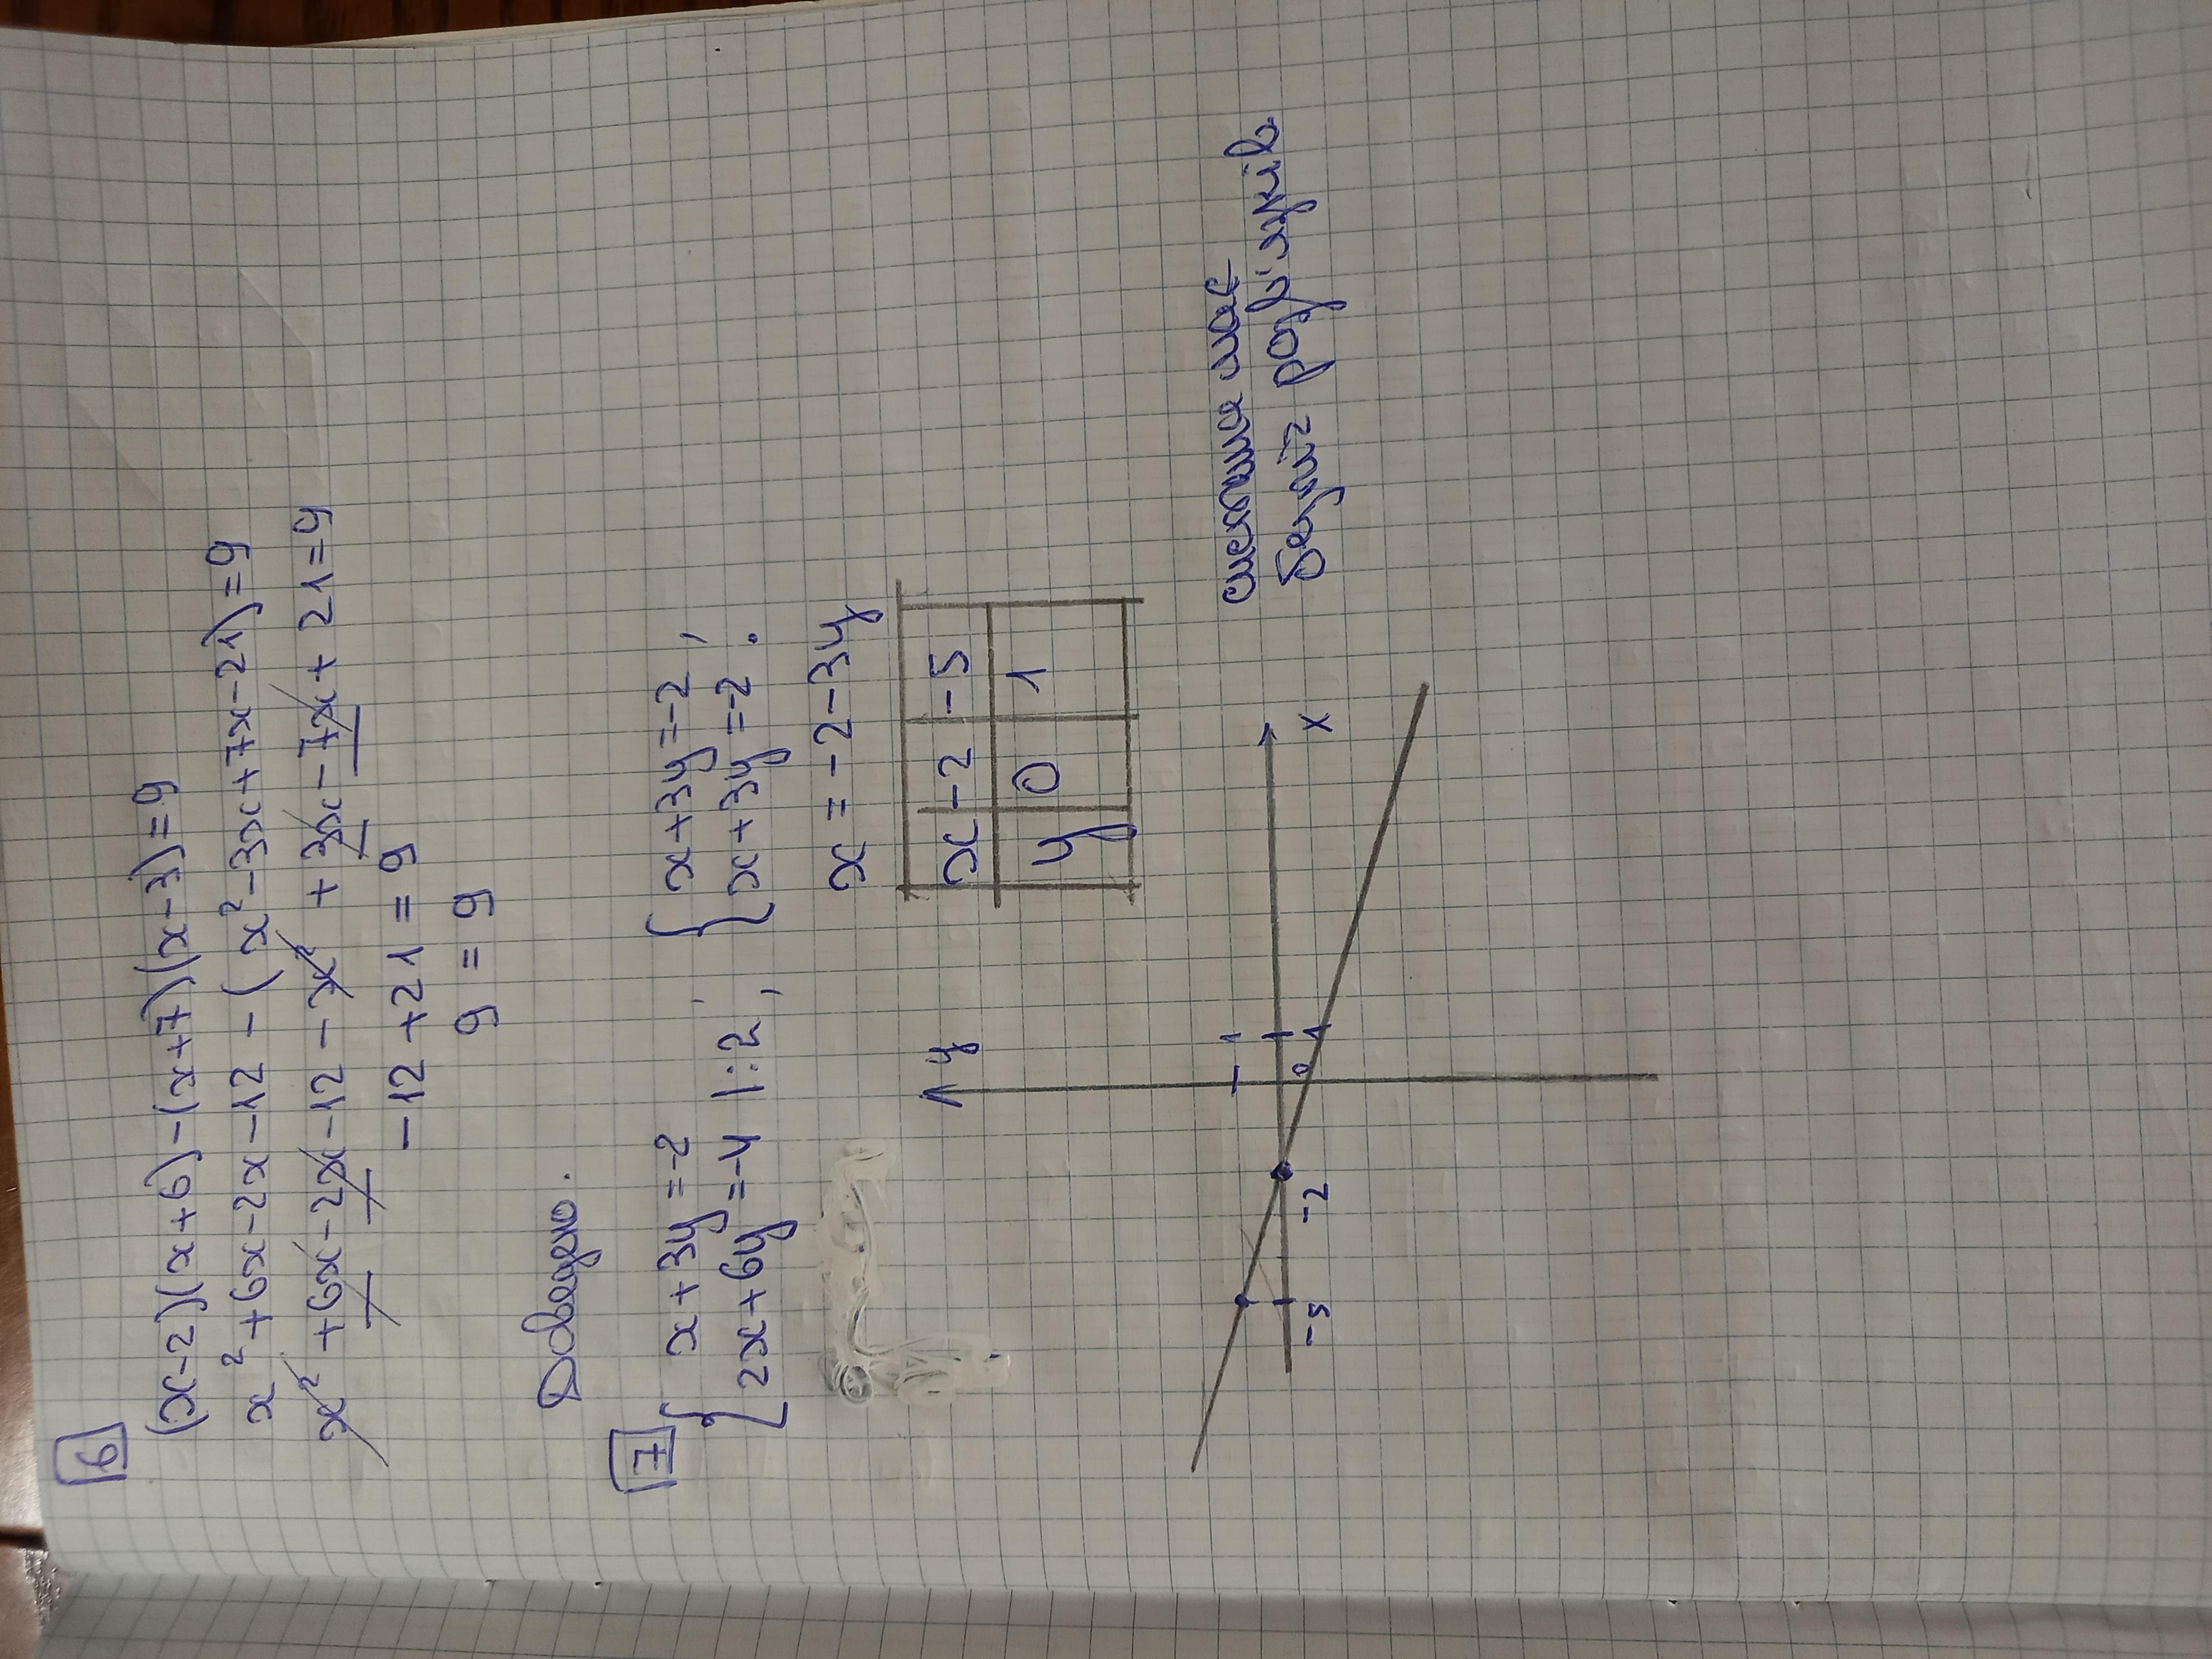 6
(x-2)(x+6)-(x+7)(x-3)=9
x²+6x-2x-12-(x²-3x+7x-21)=9
x²+6x-2x-12-x²+3x-7x+21=9
-12+21=9
9=9
Доведено.
7
{ x+3y=-2 { x+3y=-2,
2x+6y=-4 |:2, x+3y=-2.
x=-2-3y
x -2 -5
y 0 1
y
1
x
0 1
-2
-5
система має
безліч розв'язків